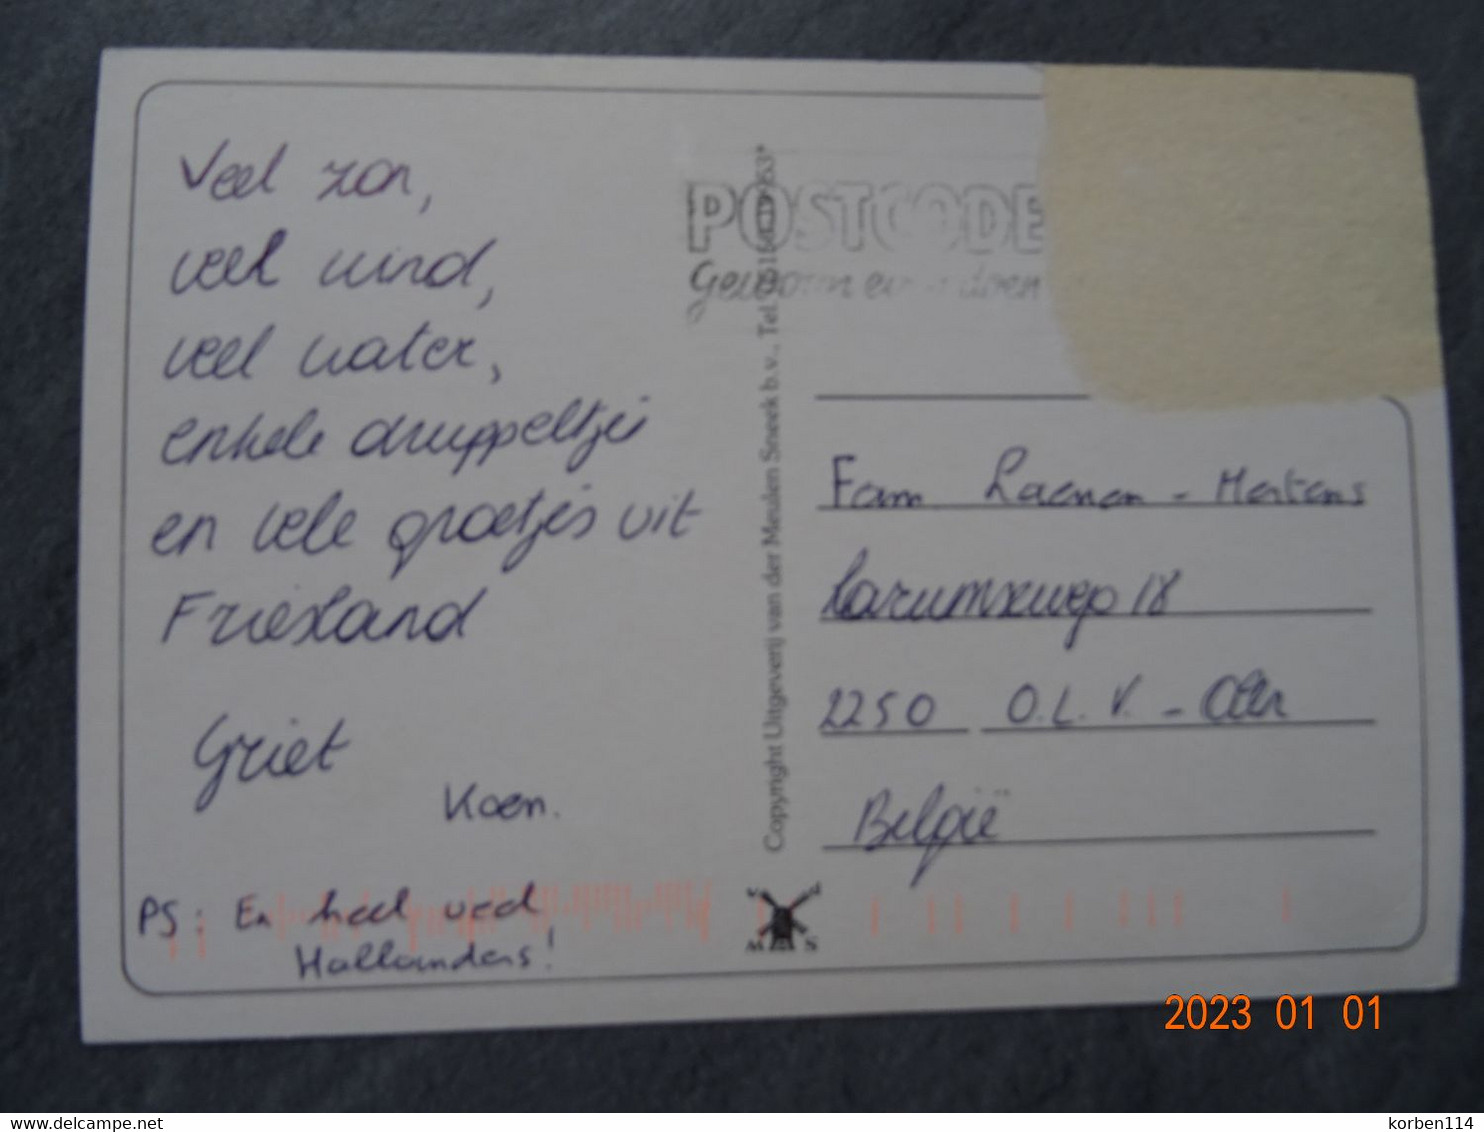 Veel zon,
veel wind,
veel water,
enkele druppeltjes
en vele groetjes uit
Friesland
Griet
Koen.
PS: En heel veel
Hollanders!
POSTCODE
Gewoon even doen
Copyright Uitgeverij van der Meulen Sneek b.v., Tel.
Fam. Laenen - Mertens
18
2250 O.L.V. - Olen
België
v d
M S
2023 01 01
delcampe.net
korben114